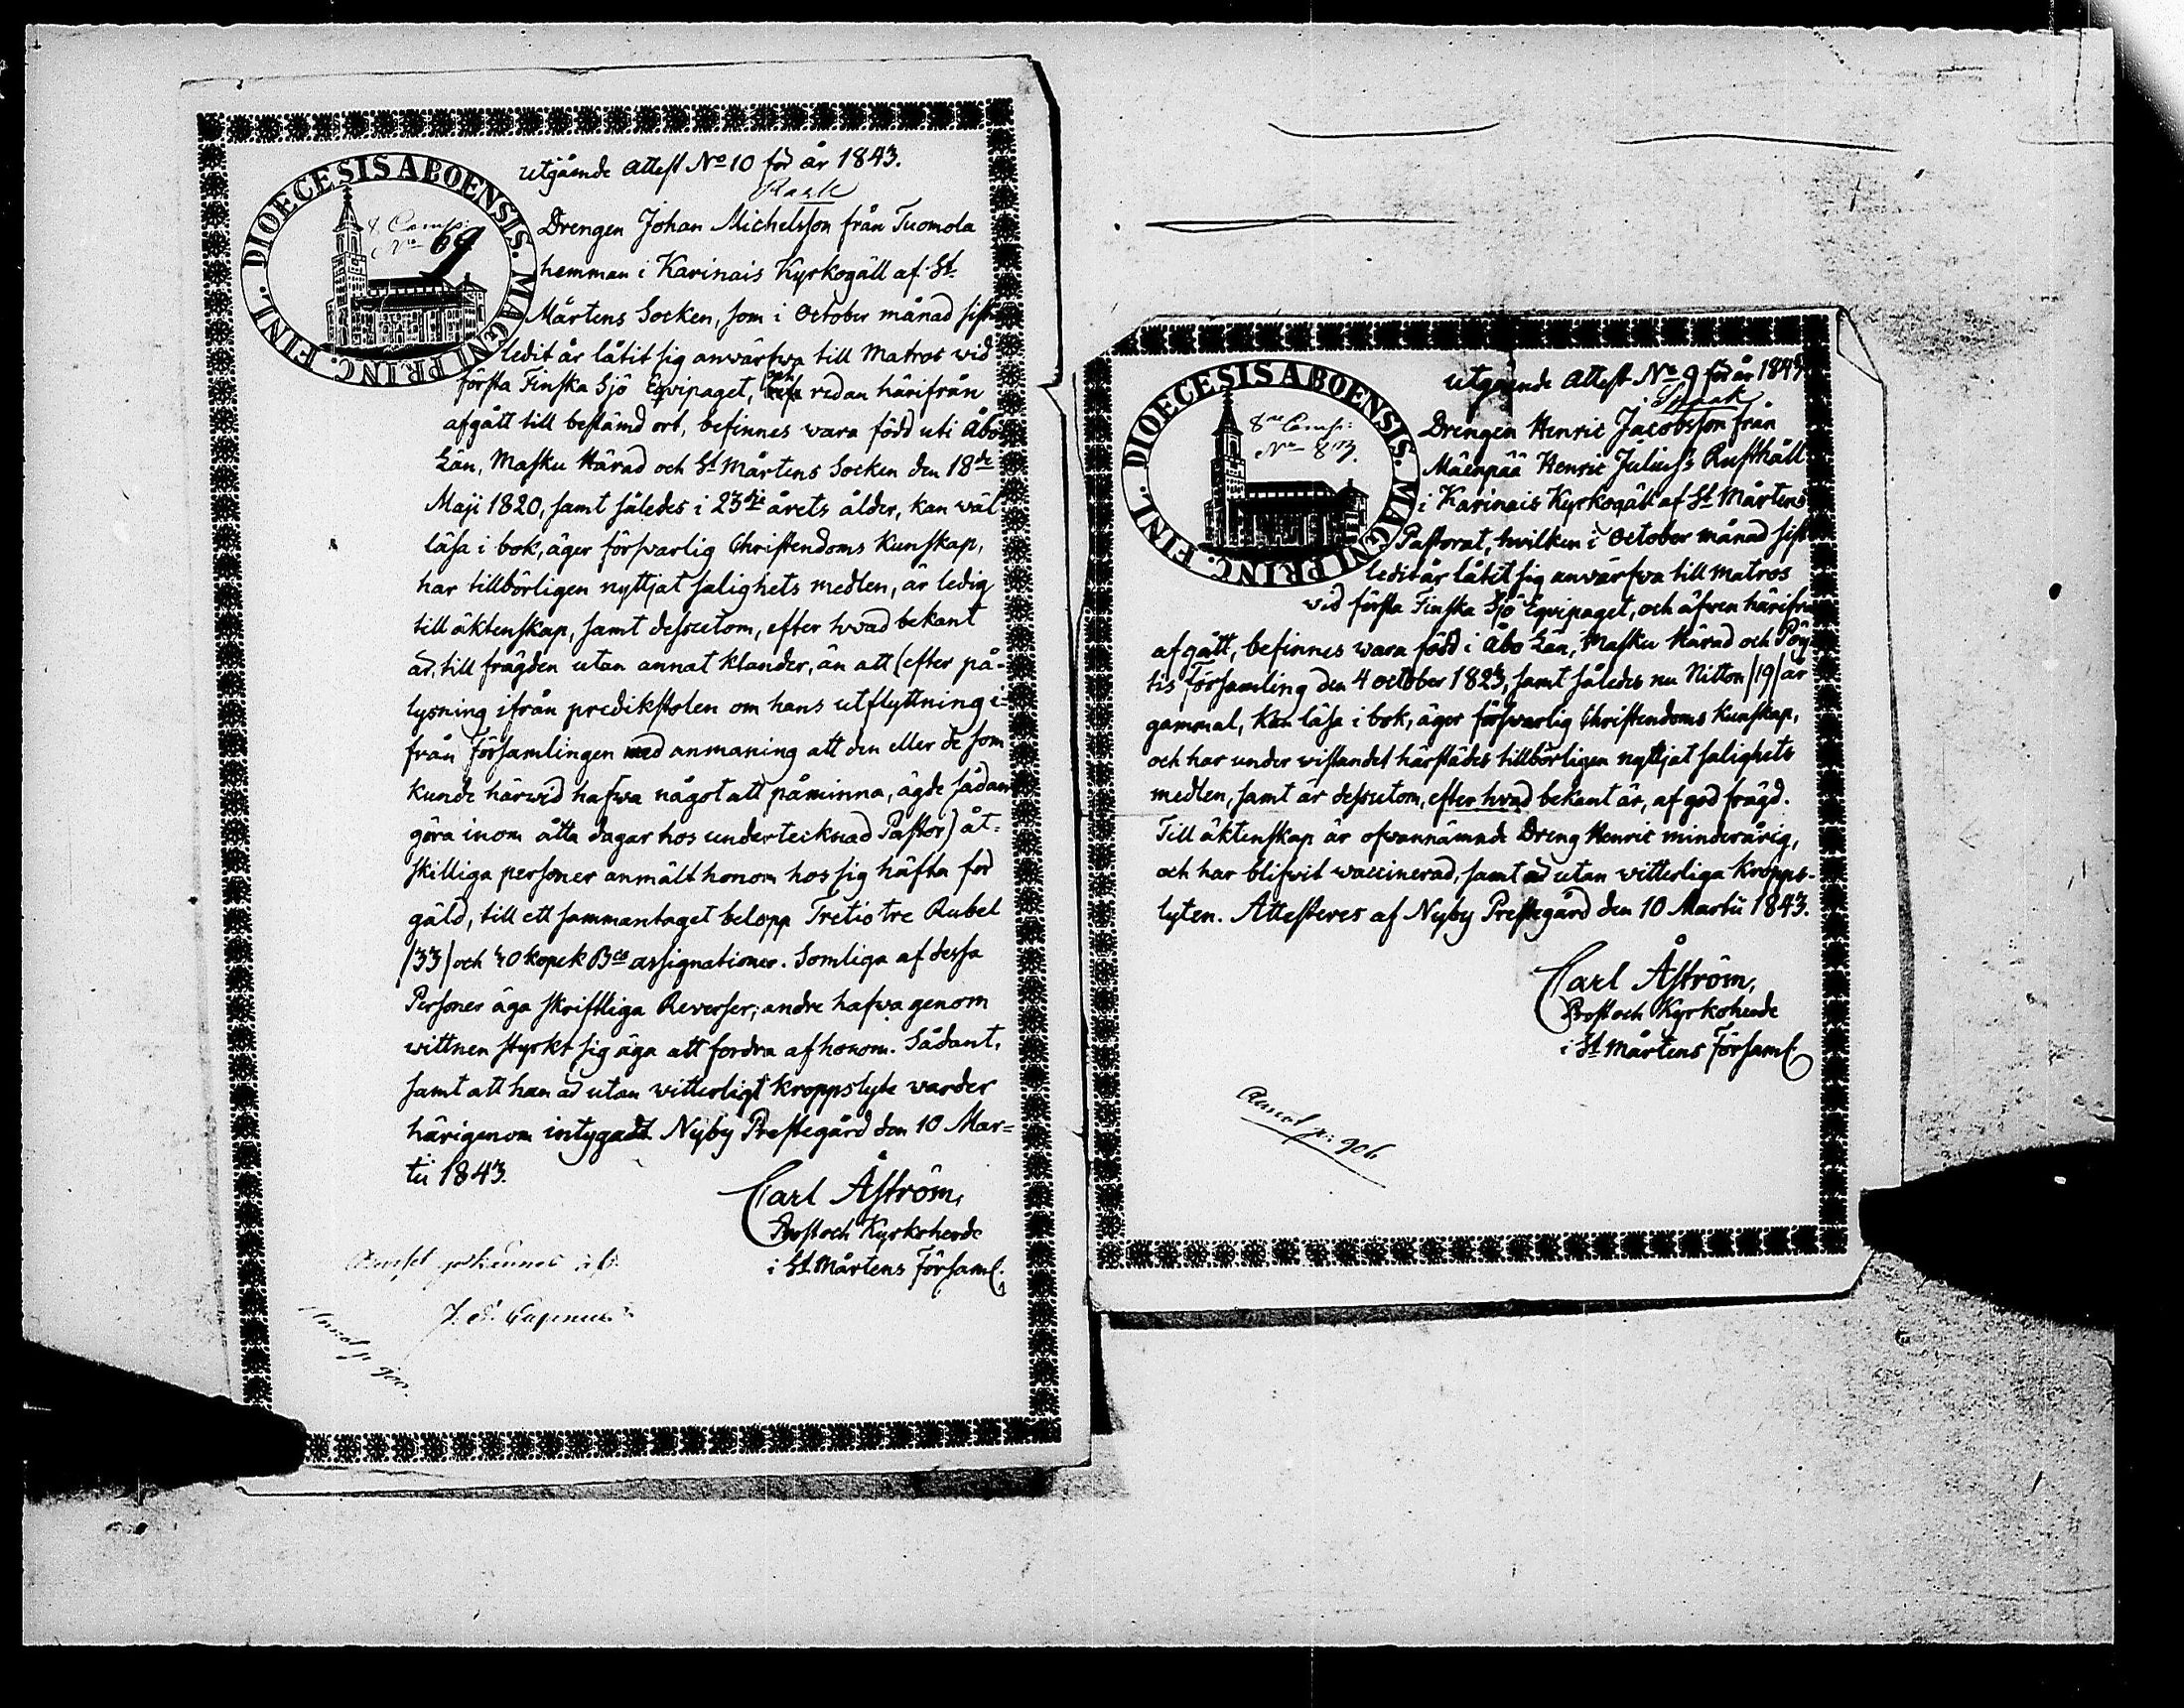 utgående attest No 10 för år 1843.
Rask
DIOECESIS ABOENSIS. MAGNI PRINC. FINL.
8 Comp:
No 69
Drengen Johan Michelsson från Tuomola
hemman i Karinais Kyrkogäll af St.
Mårtens Socken, som i October månad sist-
ledit år låtit sig anwärfwa till Matros wid
första Finska Sjö Eqvipaget, och redan härifrån
afgått till bestämd ort, befinnes wara född uti Åbo
Län, Masku Härad och St Mårtens Socken den 18de
Maji 1820, samt således i 23dje årets ålder, kan wäl
läsa i bok, äger förswarlig Christendoms Kunskap,
har tillbörligen nyttjat salighets medlen, är ledig
till äktenskap, samt dessutom, efter hvad bekant
är, till frägden utan annat klander, än att (efter på-
lysning ifrån predikstolen om hans utflyttning i-
från Församlingen med anmaning att den eller de som
kunde härwid hafwa något att påminna, ägde sådant
göra inom åtta dagar hos undertecknad Pastor) åt-
skilliga personer anmält honom hos sig häfta för
gäld, till ett sammantaget belopp Tretiotre Rubel
/33/ och 40 kopek Bco assignationer. Somliga af dessa
Personer äga skriftliga Reverser; andre hafwa genom
wittnen styrkt sig äga att fordra af honom. Sådant,
samt att han är utan witterligt kroppslyte warder
härigenom intygadt. Nyby Prestegård den 10 Mar=
tii 1843.
Carl Åström,
Prost och Kyrkoherde
i St. Mårtens Församl.
J. E.
utgående attest No 9 för år 1843
Spaak
DIOECESIS ABOENSIS. MAGNI PRINC. FINL.
8de Comp:
No 83.
Drengen Henric Jacobsson från
Mäenpää Henric Julius's Rusthåll
i Karinais Kyrkogäll af St Mårtens
Pastorat, hvilken i October månad sist
ledit år låtit sig anwärfwa till matros
wid första Finska Sjö Eqvipaget, och äfwen härifrån
afgått, befinnes wara född i Åbo Län, Masku Härad och Pöy-
tis Församling den 4 october 1823, samt således nu Nitton /19/ år
gammal, kan läsa i bok, äger förswarlig Christendoms Kunskap,
och har under wistandet härstädes tillbörligen nyttjat salighets
medlen, samt är dessutom, efter hvad bekant är, af god frägd.
Till äktenskap är ofwannämnde Dreng Henric minderårig,
och har blifwit waccinerad, samt är utan witterliga kropps-
lyten. Attesteres af Nyby Prestegård den 10 Martii 1843.
Carl Åström,
Prost och Kyrkoherde
i St. Mårtens Församl.
Annot p: 906